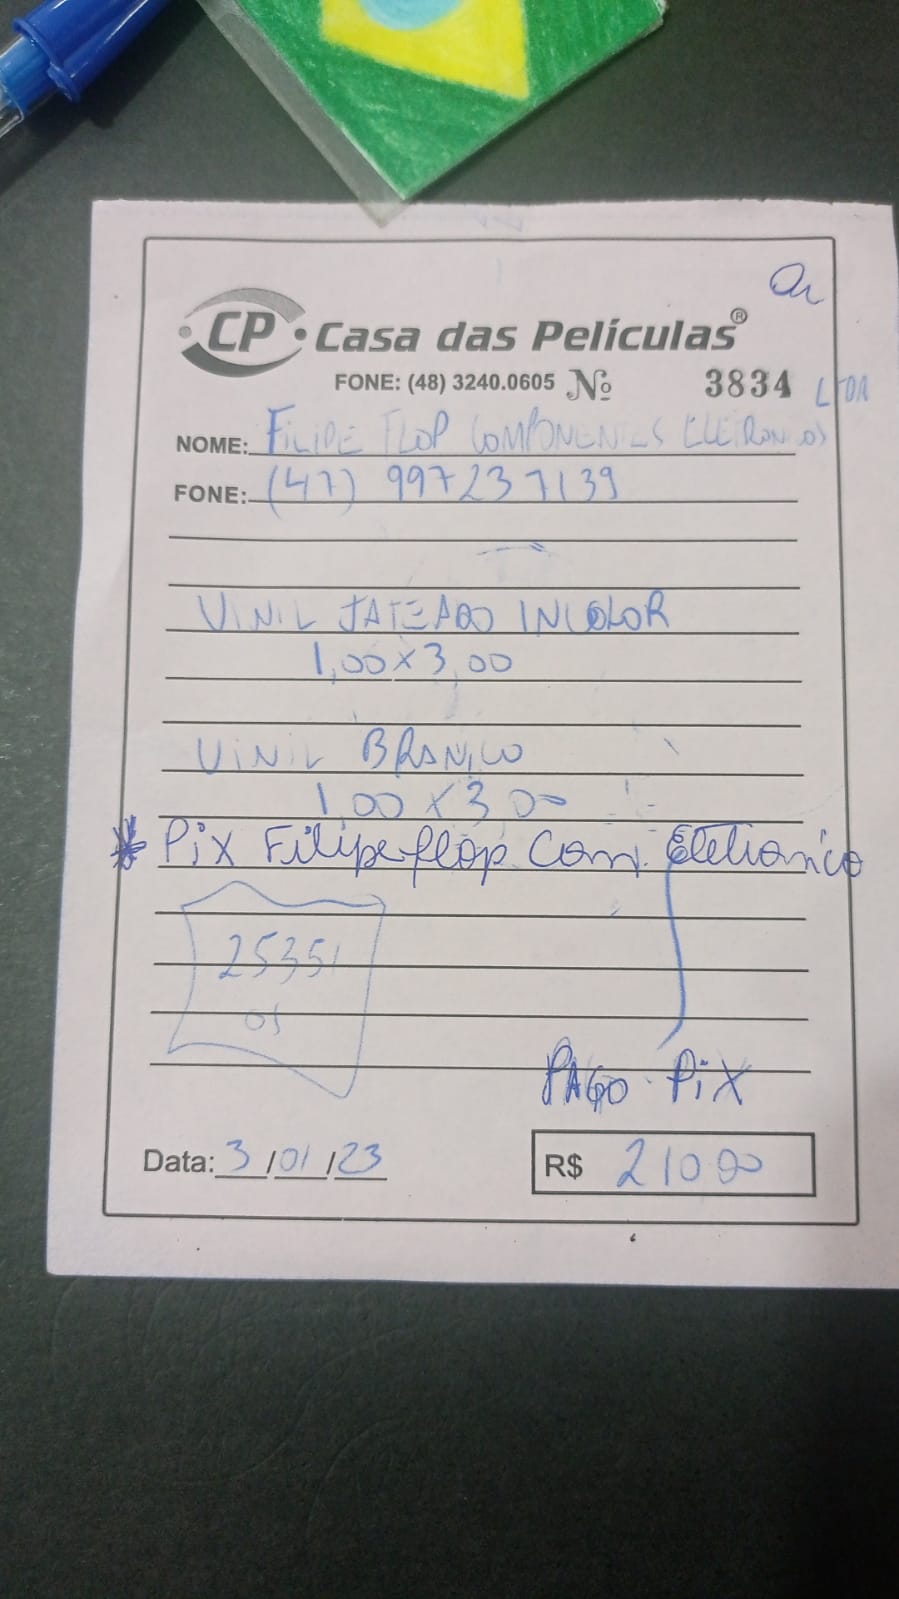 CP Casa das Películas®
FONE: (48) 3240.0605 Nº 3834 LTDA
NOME: FILIPE FLOP COMPONENTES ELETRONICOS
FONE: (47) 997237139
VINIL JATEADO INCOLOR
1,00 x 3,00
VINIL BRANCO
1,00 x 3,00
* Pix Filipeflop Com. Eletronico
25351
OS
PAGO PiX
Data: 3 / 01 / 23
R$ 210 00